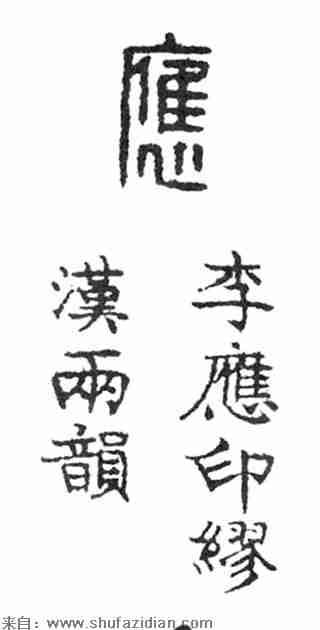 應
李應印繆
漢兩韻
来自：www.shufazidian.com